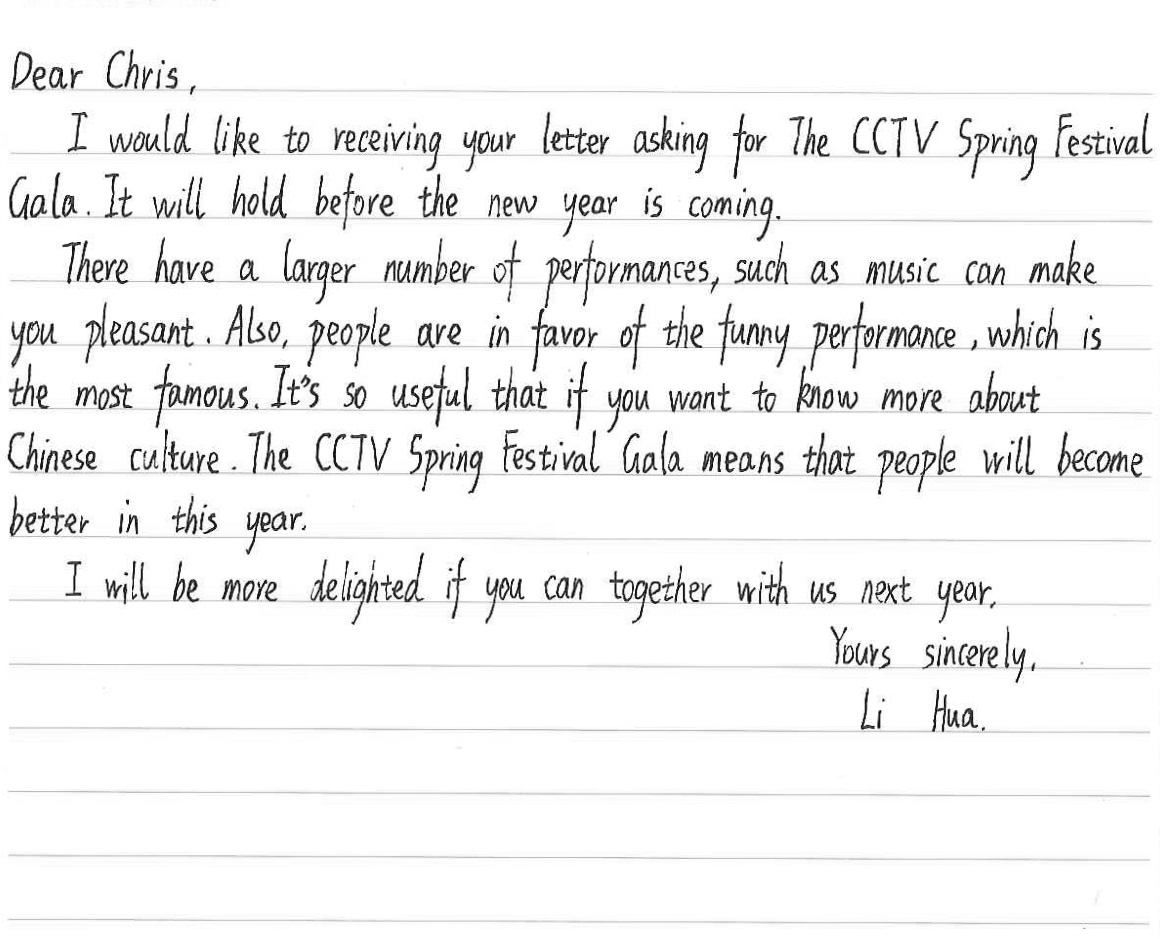 Dear Chris,
I would like to receiving your letter asking for The CCTV Spring Festival
Gala. It will hold before the new year is coming.
There have a larger number of performances, such as music can make
you pleasant. Also, people are in favor of the funny performance, which is
the most famous. It's so useful that if you want to know more about
Chinese culture. The CCTV Spring Festival Gala means that people will become
better in this year.
I will be more delighted if you can together with us next year.
Yours sincerely,
Li Hua.